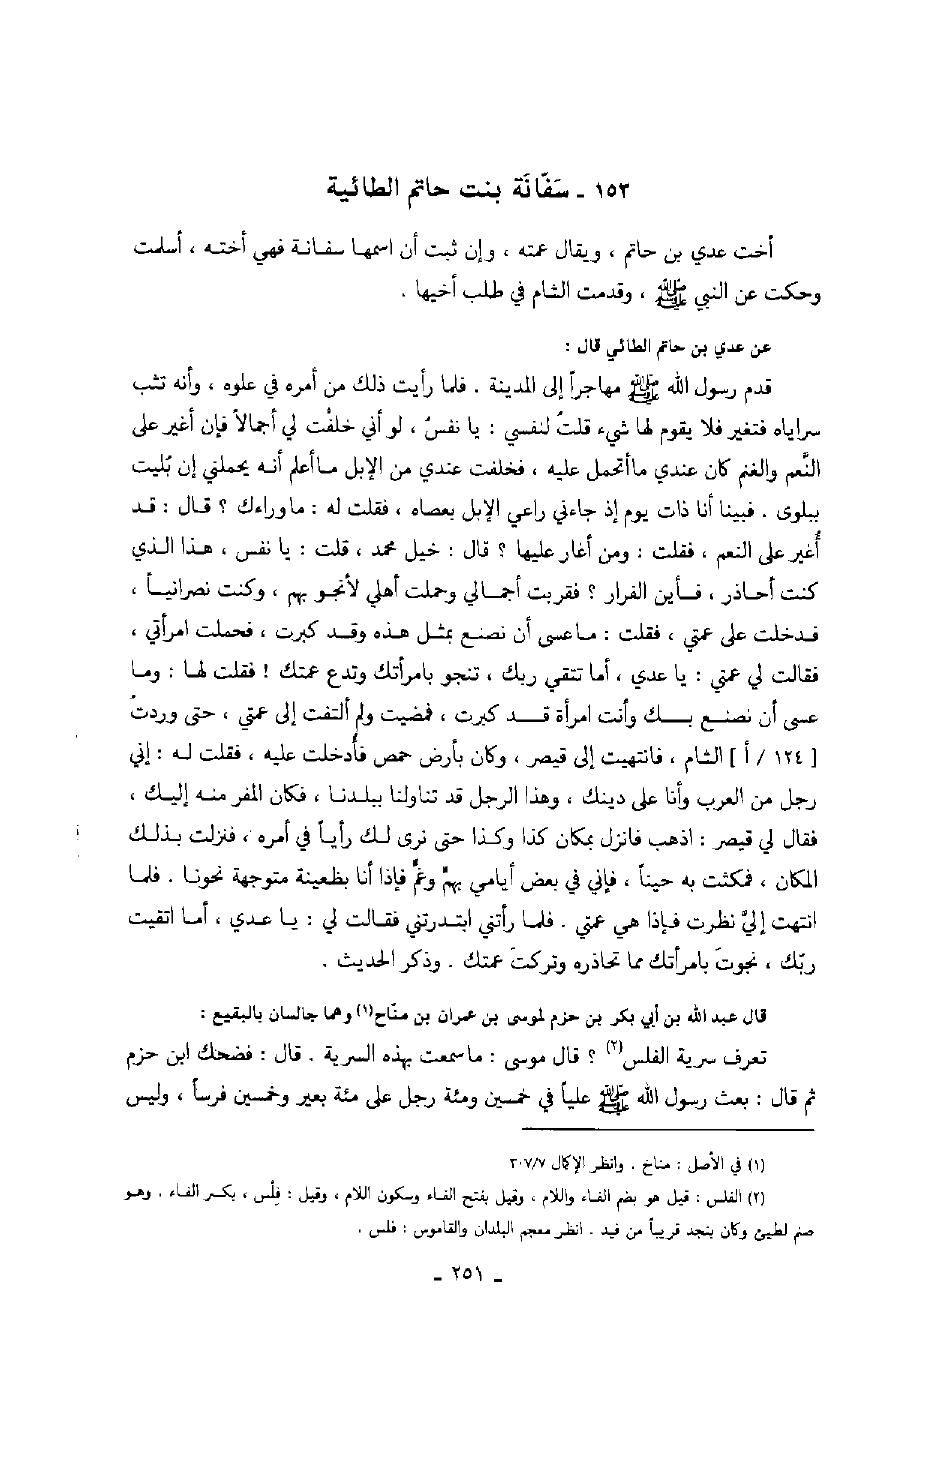 ١٥٣ ـ سَفّانَة بنت حاتم الطائية
أخت عدي بن حاتم ، ويقال عمته ، وإن ثبت أن اسمها سفانة فهي أخته ، أسلمت
وحكت عن النبي ﷺ ، وقدمت الشام في طلب أخيها .
عن عدي بن حاتم الطائي قال :
قدم رسول الله ﷺ مهاجراً إلى المدينة . فلما رأيت ذلك من أمره في علوه ، وأنه تثب
سراياه فتغير فلا يقوم لها شيء قلتُ لنفسي : يا نفسُ ، لو أني خلفْت لي أجمالاً فإن أغير على
النَّعم والغنم كان عندي ماأتحمل عليه ، فخلفت عندي من الإبل ماأعلم أنه يحملني إن بُليت
ببلوى . فبينا أنا ذات يوم إذ جاءني راعي الإبل بعصاه ، فقلت له : ماوراءك ؟ قال : قد
أُغير على النعم ، فقلت : ومن أغار عليها ؟ قال : خيل محمد ، قلت : يا نفس ، هذا الذي
كنت أحاذر ، فأين الفرار ؟ فقربت أجمالي وحملت أهلي لأنجو بهم ، وكنت نصرانياً ،
فدخلت على عمتي ، فقلت : ماعسى أن نصنع بمثل هذه وقد كبرت ، فحملت امرأتي ،
فقالت لي عمتي : يا عدي ، أما تتقي ربك ، تنجو بامرأتك وتدع عمتك ! فقلت لها : وما
عسى أن نصنع بك وأنت امرأة قد كبرت ، فمضيت ولم ألتفت إلى عمتي ، حتى وردتُ
[ ١٢٤ / أ ] الشام ، فانتهيت إلى قيصر ، وكان بأرض حمص فأُدخلت عليه ، فقلت له : إني
رجل من العرب وأنا على دينك ، وهذا الرجل قد تناولنا ببلدنا ، فكان المفر منه إليك ،
فقال لي قيصر : اذهب فانزل بمكان كذا وكذا حتى نرى لك رأياً في أمره ، فنزلت بذلك
المكان ، فمكثت به حيناً ، فإني في بعض أيامي بهمٍّ وغمٍّ فإذا أنا بظعينة متوجهة نحونا . فلما
انتهت إليَّ نظرت فإذا هي عمتي . فلما رأتني ابتدرتني فقالت لي : يا عدي ، أما اتقيت
ربّك ، نجوتَ بامرأتك مما تحاذره وتركتَ عمتك . وذكر الحديث .
قال عبد الله بن أبي بكر بن حزم لموسى بن عمران بن منّاح(١) وهما جالسان بالبقيع :
تعرف سرية الفلس(٢) ؟ قال موسى : ماسمعت بهذه السرية . قال : فضحك ابن حزم
ثم قال : بعث رسول الله ﷺ علياً في خمسين ومئة رجل على مئة بعير وخمسين فرساً ، وليس
(١) في الأصل : مناخ . وانظر الإكمال ٣٠٧/٧
(٢) الفلس : قيل هو بضم الفاء واللام ، وقيل بفتح الفاء وسكون اللام ، وقيل : فِلْس ، بكسر الفاء . وهو
صنم لطيئ وكان بنجد قريباً من فيد . انظر معجم البلدان والقاموس : فلس .
ـ ٢٥١ ـ